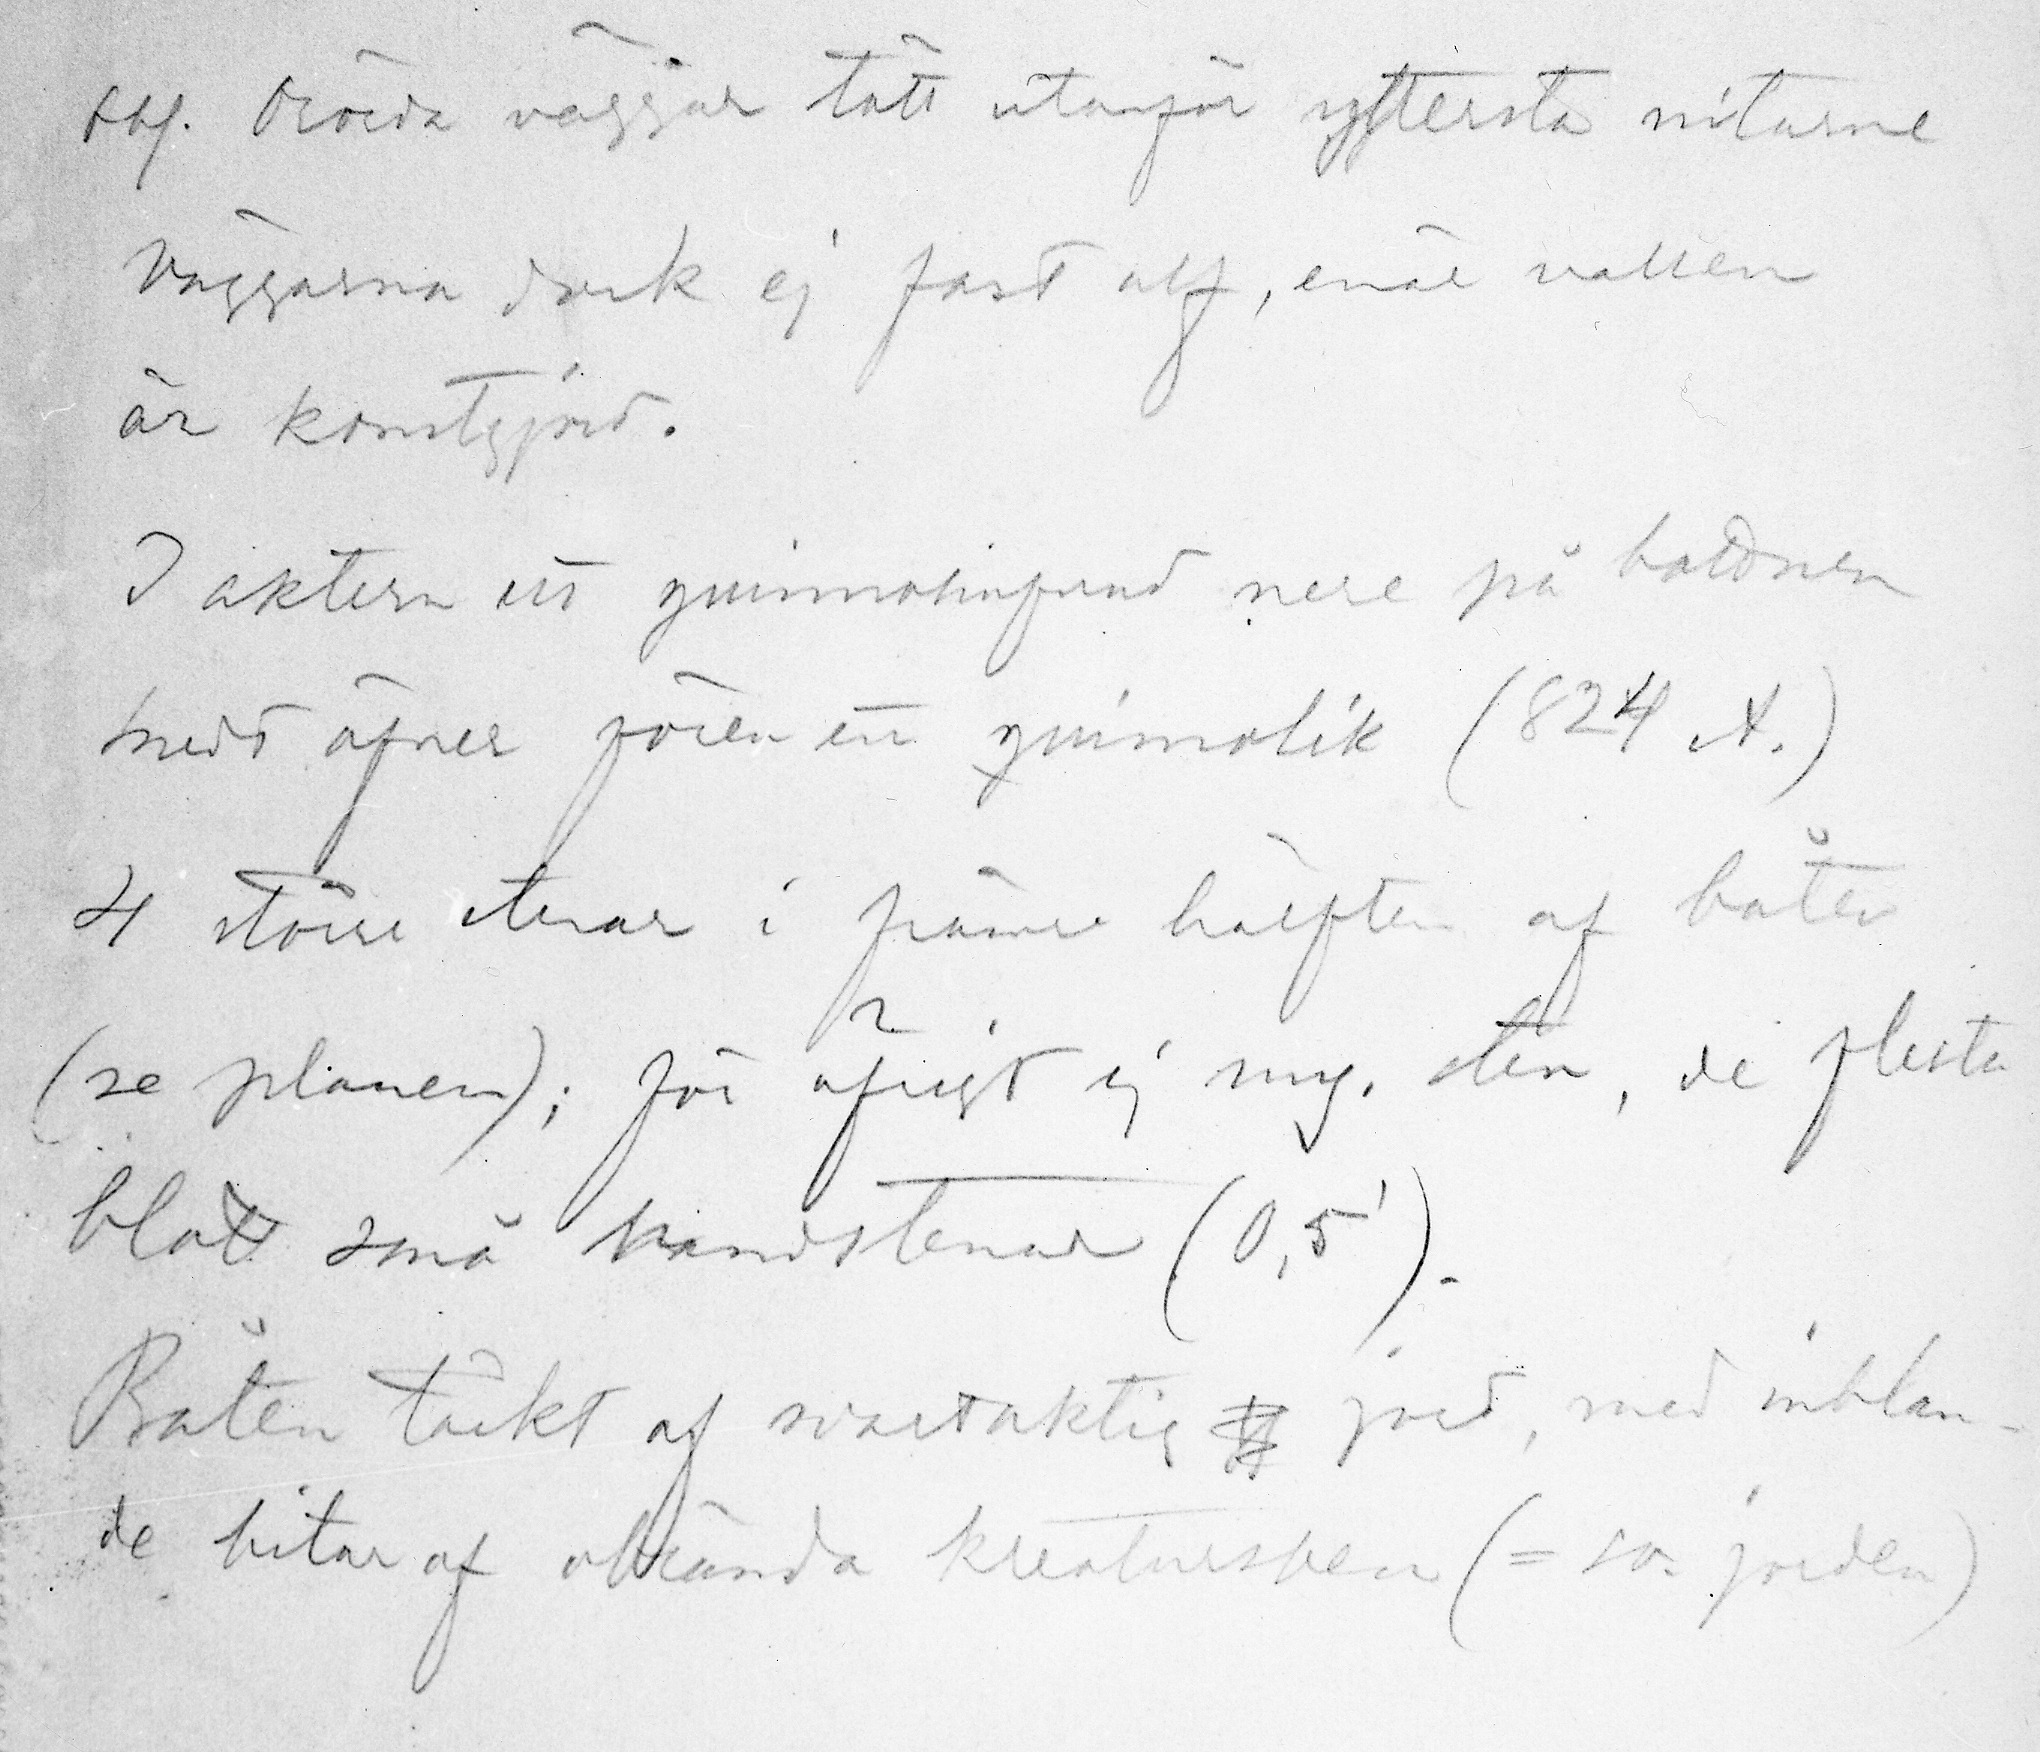 obs. Orörda väggar tätt utanför yttersta nitarne
Väggarna dock ej fast alf, enär vallen
är konstgjord.
I aktern ett qvinnohufvud nere på bordnen
midt öfver fören ett qvinnolik (824 st.)
4 större stenar i främre hälften af båten
(se planen); för öfrigt ej my. sten, de flesta
blott små kandstenar (0,5').
Båten täckt af svartaktig jord, med inblan-
de bitar af obrända kreatursben (= so. jorden)